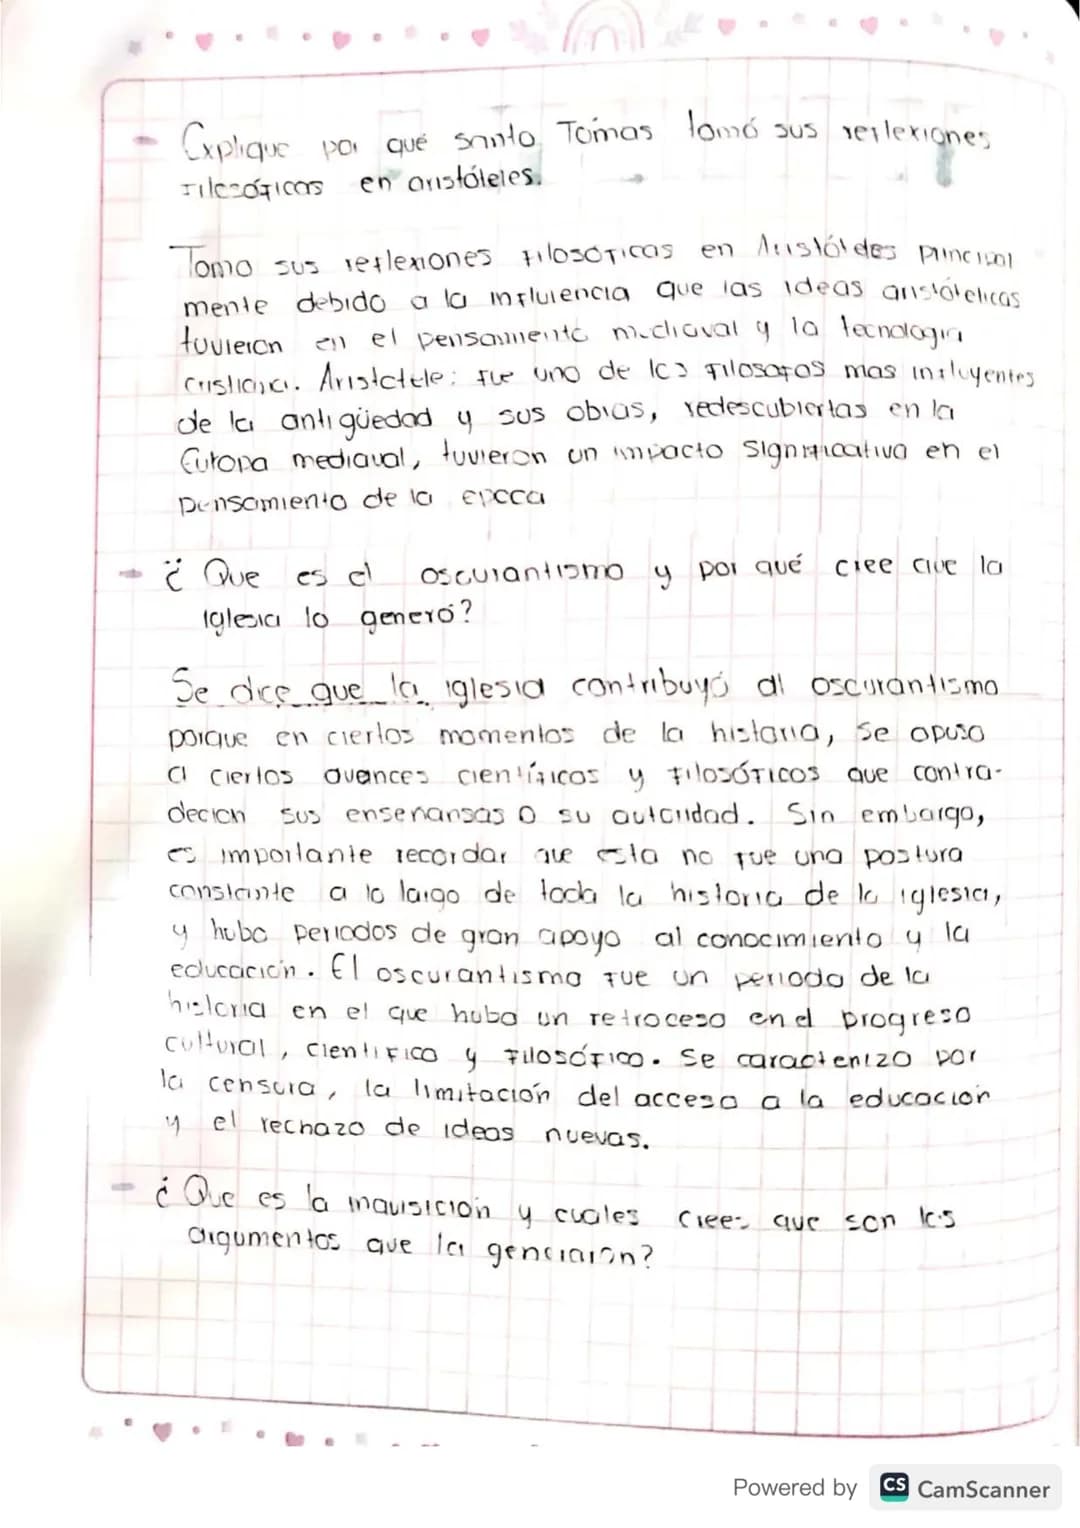 - Explique por qué santo Tomas tomó sus reflexiones
filosóficas en aristóteles.
Tomo sus reflexiones filosóficas en Aristóteles principal
mente debido a la influiencia que las ideas aristótelicas
tuvieron en el pensamiento mediaval y la tecnologia
cristiana. Aristotele: fue uno de los filosofos mas influyentes
de la antigüedad y sus obras, redescubiertas en la
Europa mediaval, tuvieron un impacto significativa en el
pensamiento de la epoca
- ¿ Que es el oscurantismo y por qué cree que la
iglesia lo generó?
Se dice que la iglesia contribuyó al oscurantismo
porque en ciertos momentos de la historia, se opuso
a ciertos avances científicos y filosóficos que contra-
decion sus enseñansas o su autoridad. Sin embargo,
es importante recordar que esta no fue una postura
constante a lo largo de toda la historia de la iglesia,
y hubo periodos de gran apoyo al conocimiento y la
educación. El oscurantismo fue un periodo de la
historia en el que hubo un retroceso en el progreso
cultural, cientifico y filosófico. Se caracterizo por
la censura, la limitación del acceso a la educación
y el rechazo de ideas nuevas.
- ¿ Que es la inquisición y cuales crees que son los
argumentos que la generarón?
Powered by CS CamScanner